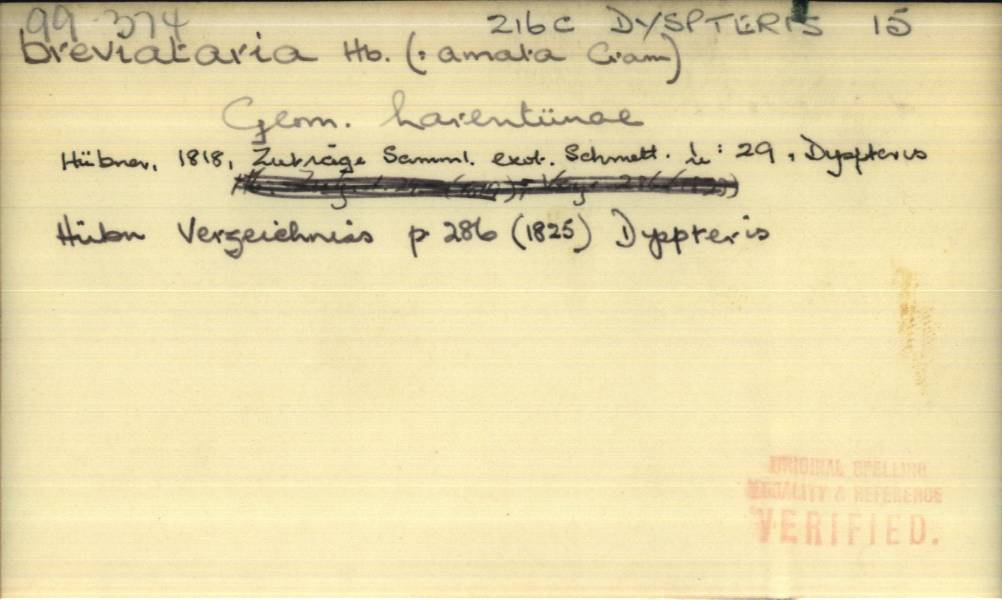 99-374 216C DYSPTERIS 15
breviataria Hb. (: amata Cram)
Geom. Larentiinae
Hübner, 1818, Zuträge Samml. exot. Schmett. 1: 29, Dyspteris
Hübn Verzeichniss p 286 (1825) Dyspteris
ORIGINAL SPELLING
LOCALITY & REFERENCE
VERIFIED.